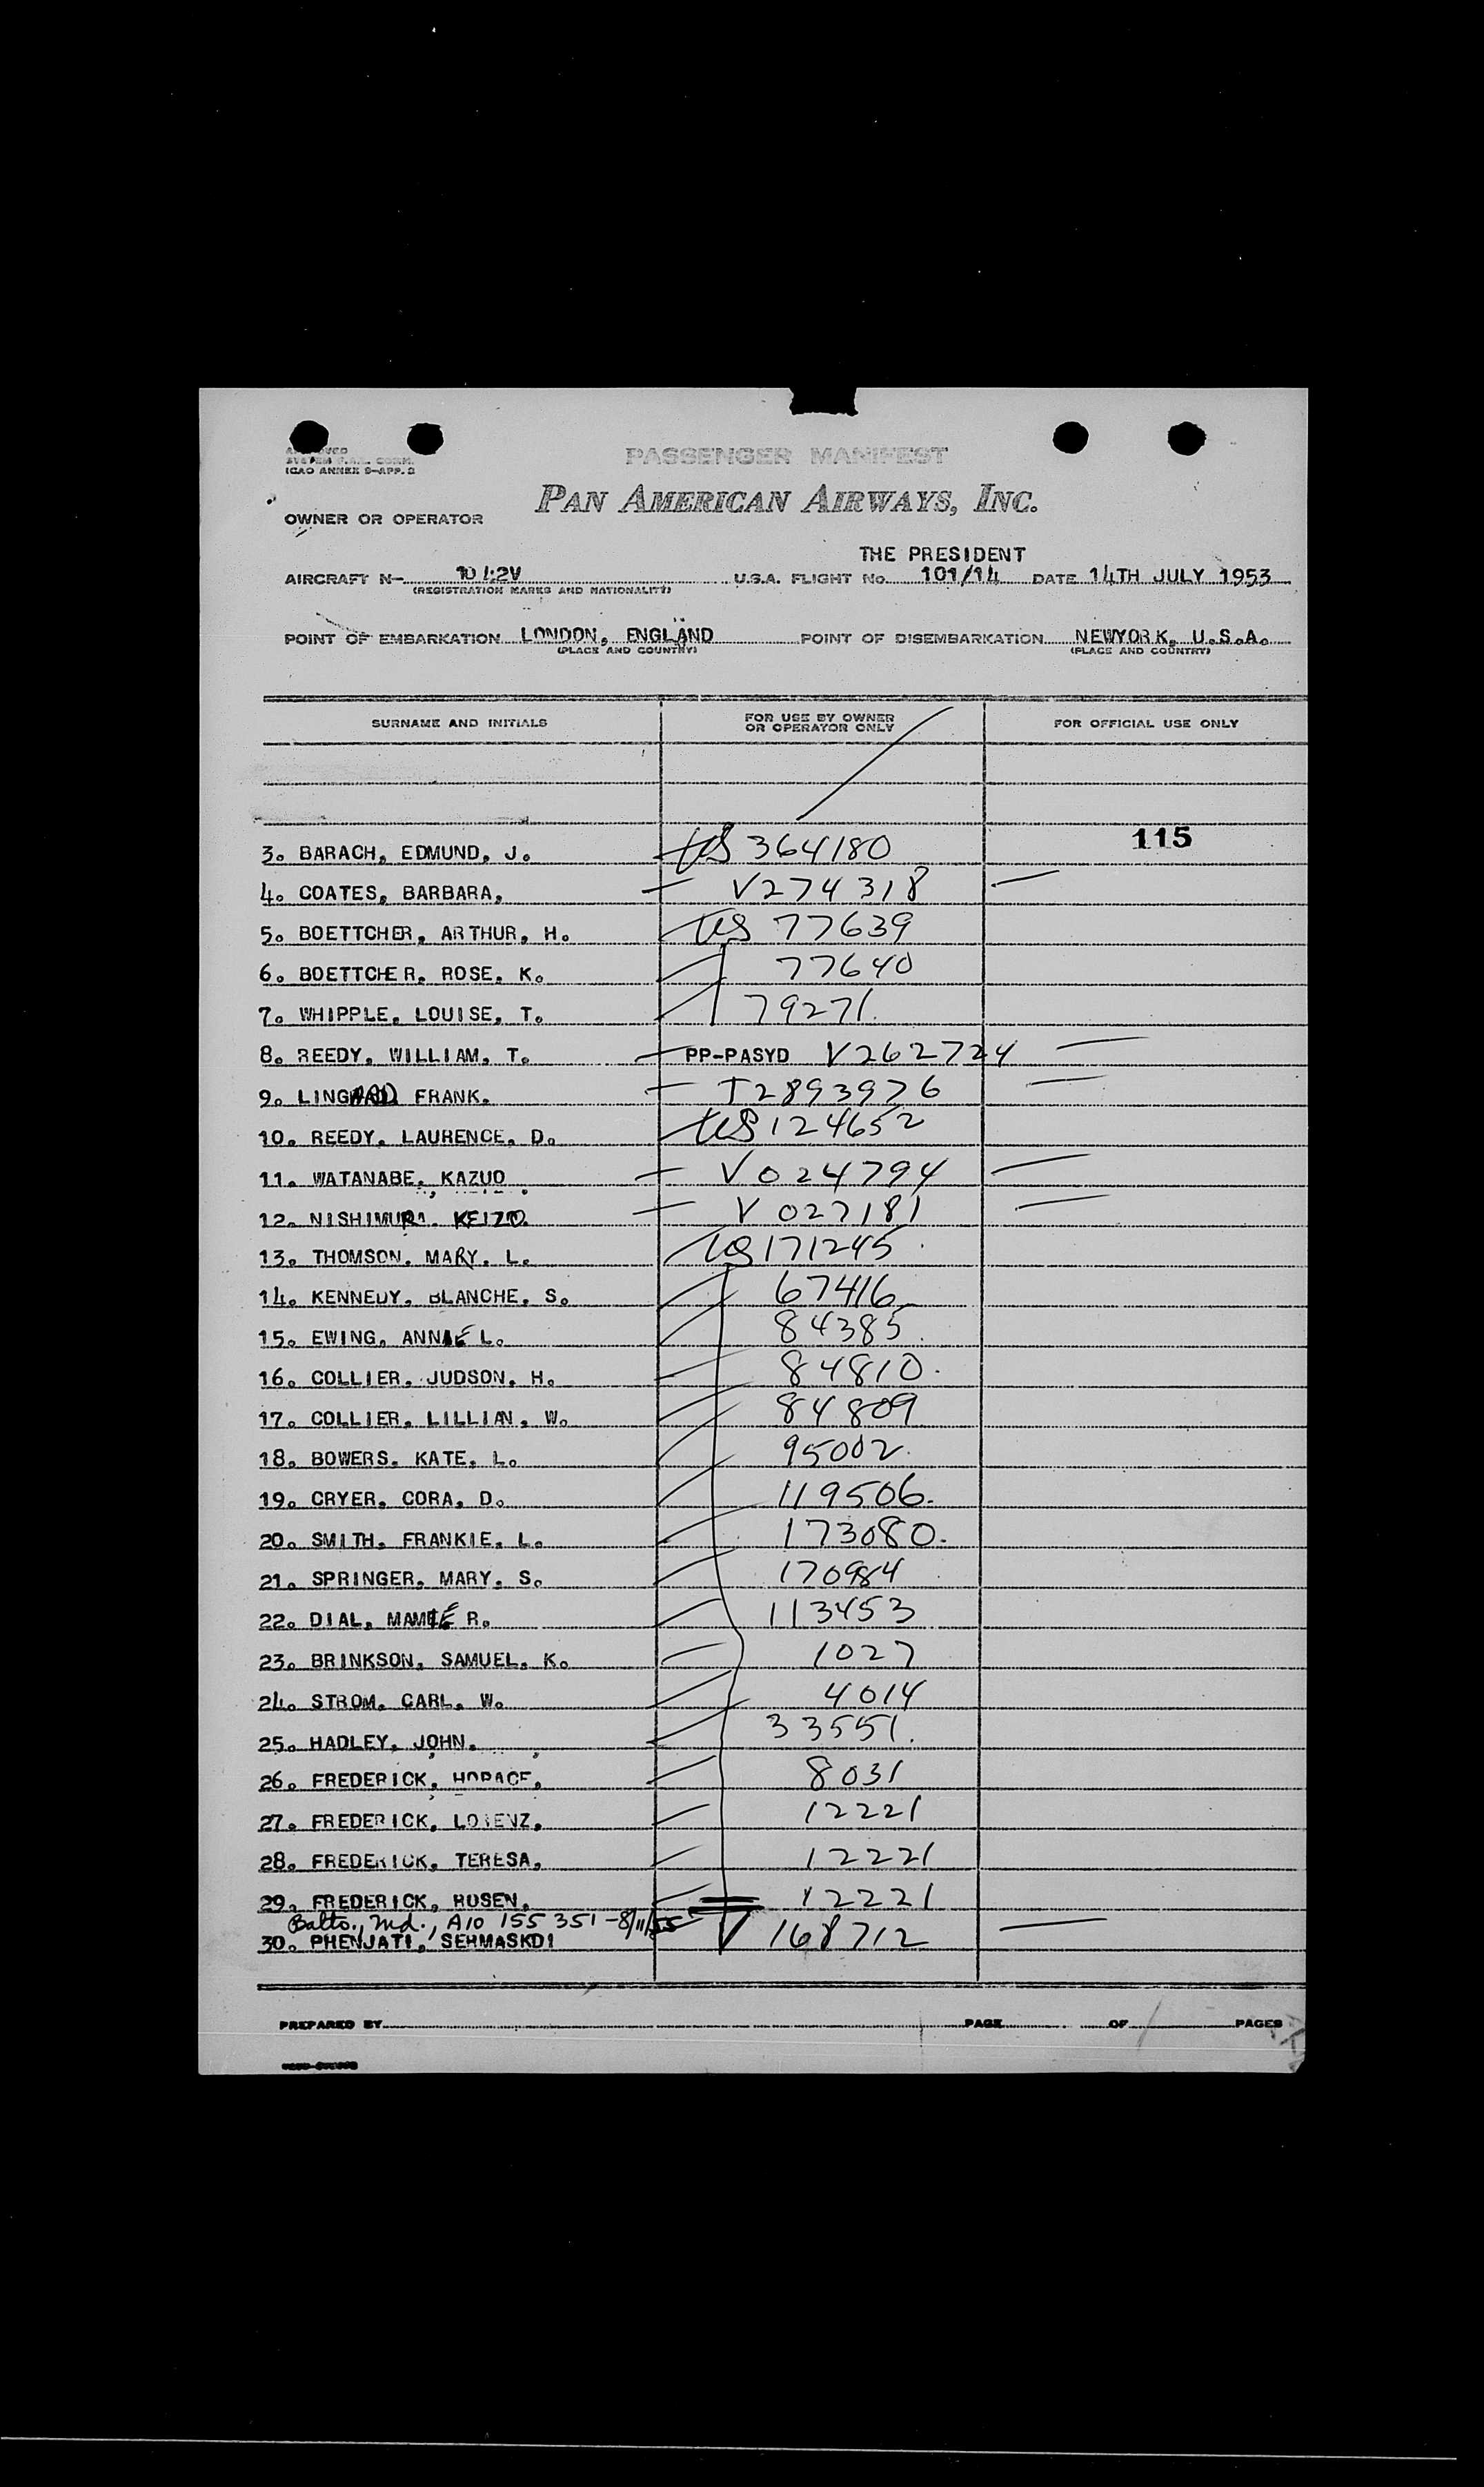 PASSENGER MANIFEST
ICAO ANNEX 9-APP. 2
PAN AMERICAN AIRWAYS, INC.
OWNER OR OPERATOR
THE PRESIDENT
AIRCRAFT N- U.S.A. FLIGHT No. 101/14 DATE 14TH JULY 1953
(REGISTRATION MARKS AND NATIONALITY)
POINT OF EMBARKATION LONDON, ENGLAND POINT OF DISEMBARKATION NEWYORK, U.S.A.
(PLACE AND COUNTRY) (PLACE AND COUNTRY)
SURNAME AND INITIALS FOR USE BY OWNER OR OPERATOR ONLY FOR OFFICIAL USE ONLY
115
3. BARACH, EDMUND, J. US 364180
4. COATES, BARBARA, V274318
5. BOETTCHER, ARTHUR, H. US 77639
6. BOETTCHER, ROSE, K. 77640
7. WHIPPLE, LOUISE, T. 79271.
8. REEDY, WILLIAM, T. PP-PASYD V262724
9. LINGARD FRANK. T2893976
10. REEDY, LAURENCE, D. US 124652
11. WATANABE, KAZUO V024794
12. NISHIMURA. KEIZO. V 027181
13. THOMSON. MARY. L. US 171245
14. KENNEDY. BLANCHE. S. 67416
15. EWING, ANNIE L. 84385.
16. COLLIER. JUDSON. H. 84810.
17. COLLIER, LILLIAN, W. 84809
18. BOWERS. KATE. L. 95002.
19. CRYER, CORA, D. 119506.
20. SMITH, FRANKIE, L. 173080.
21. SPRINGER, MARY, S. 170984
22. DIAL, MAMIE R. 113453
23. BRINKSON, SAMUEL, K. 1027
24. STROM, CARL, W. 4014
25. HADLEY, JOHN. 33551.
26. FREDERICK, HORACE, 8031
27. FREDERICK, LORENZ, 12221
28. FREDERICK, TERESA, 12221
29. FREDERICK, ROSEN, 12221
Balto., Md., A10 155 351 - 8/11/55
30. PHENJATI, SEHMASKDI V 168712
PREPARED BY PAGE OF PAGES